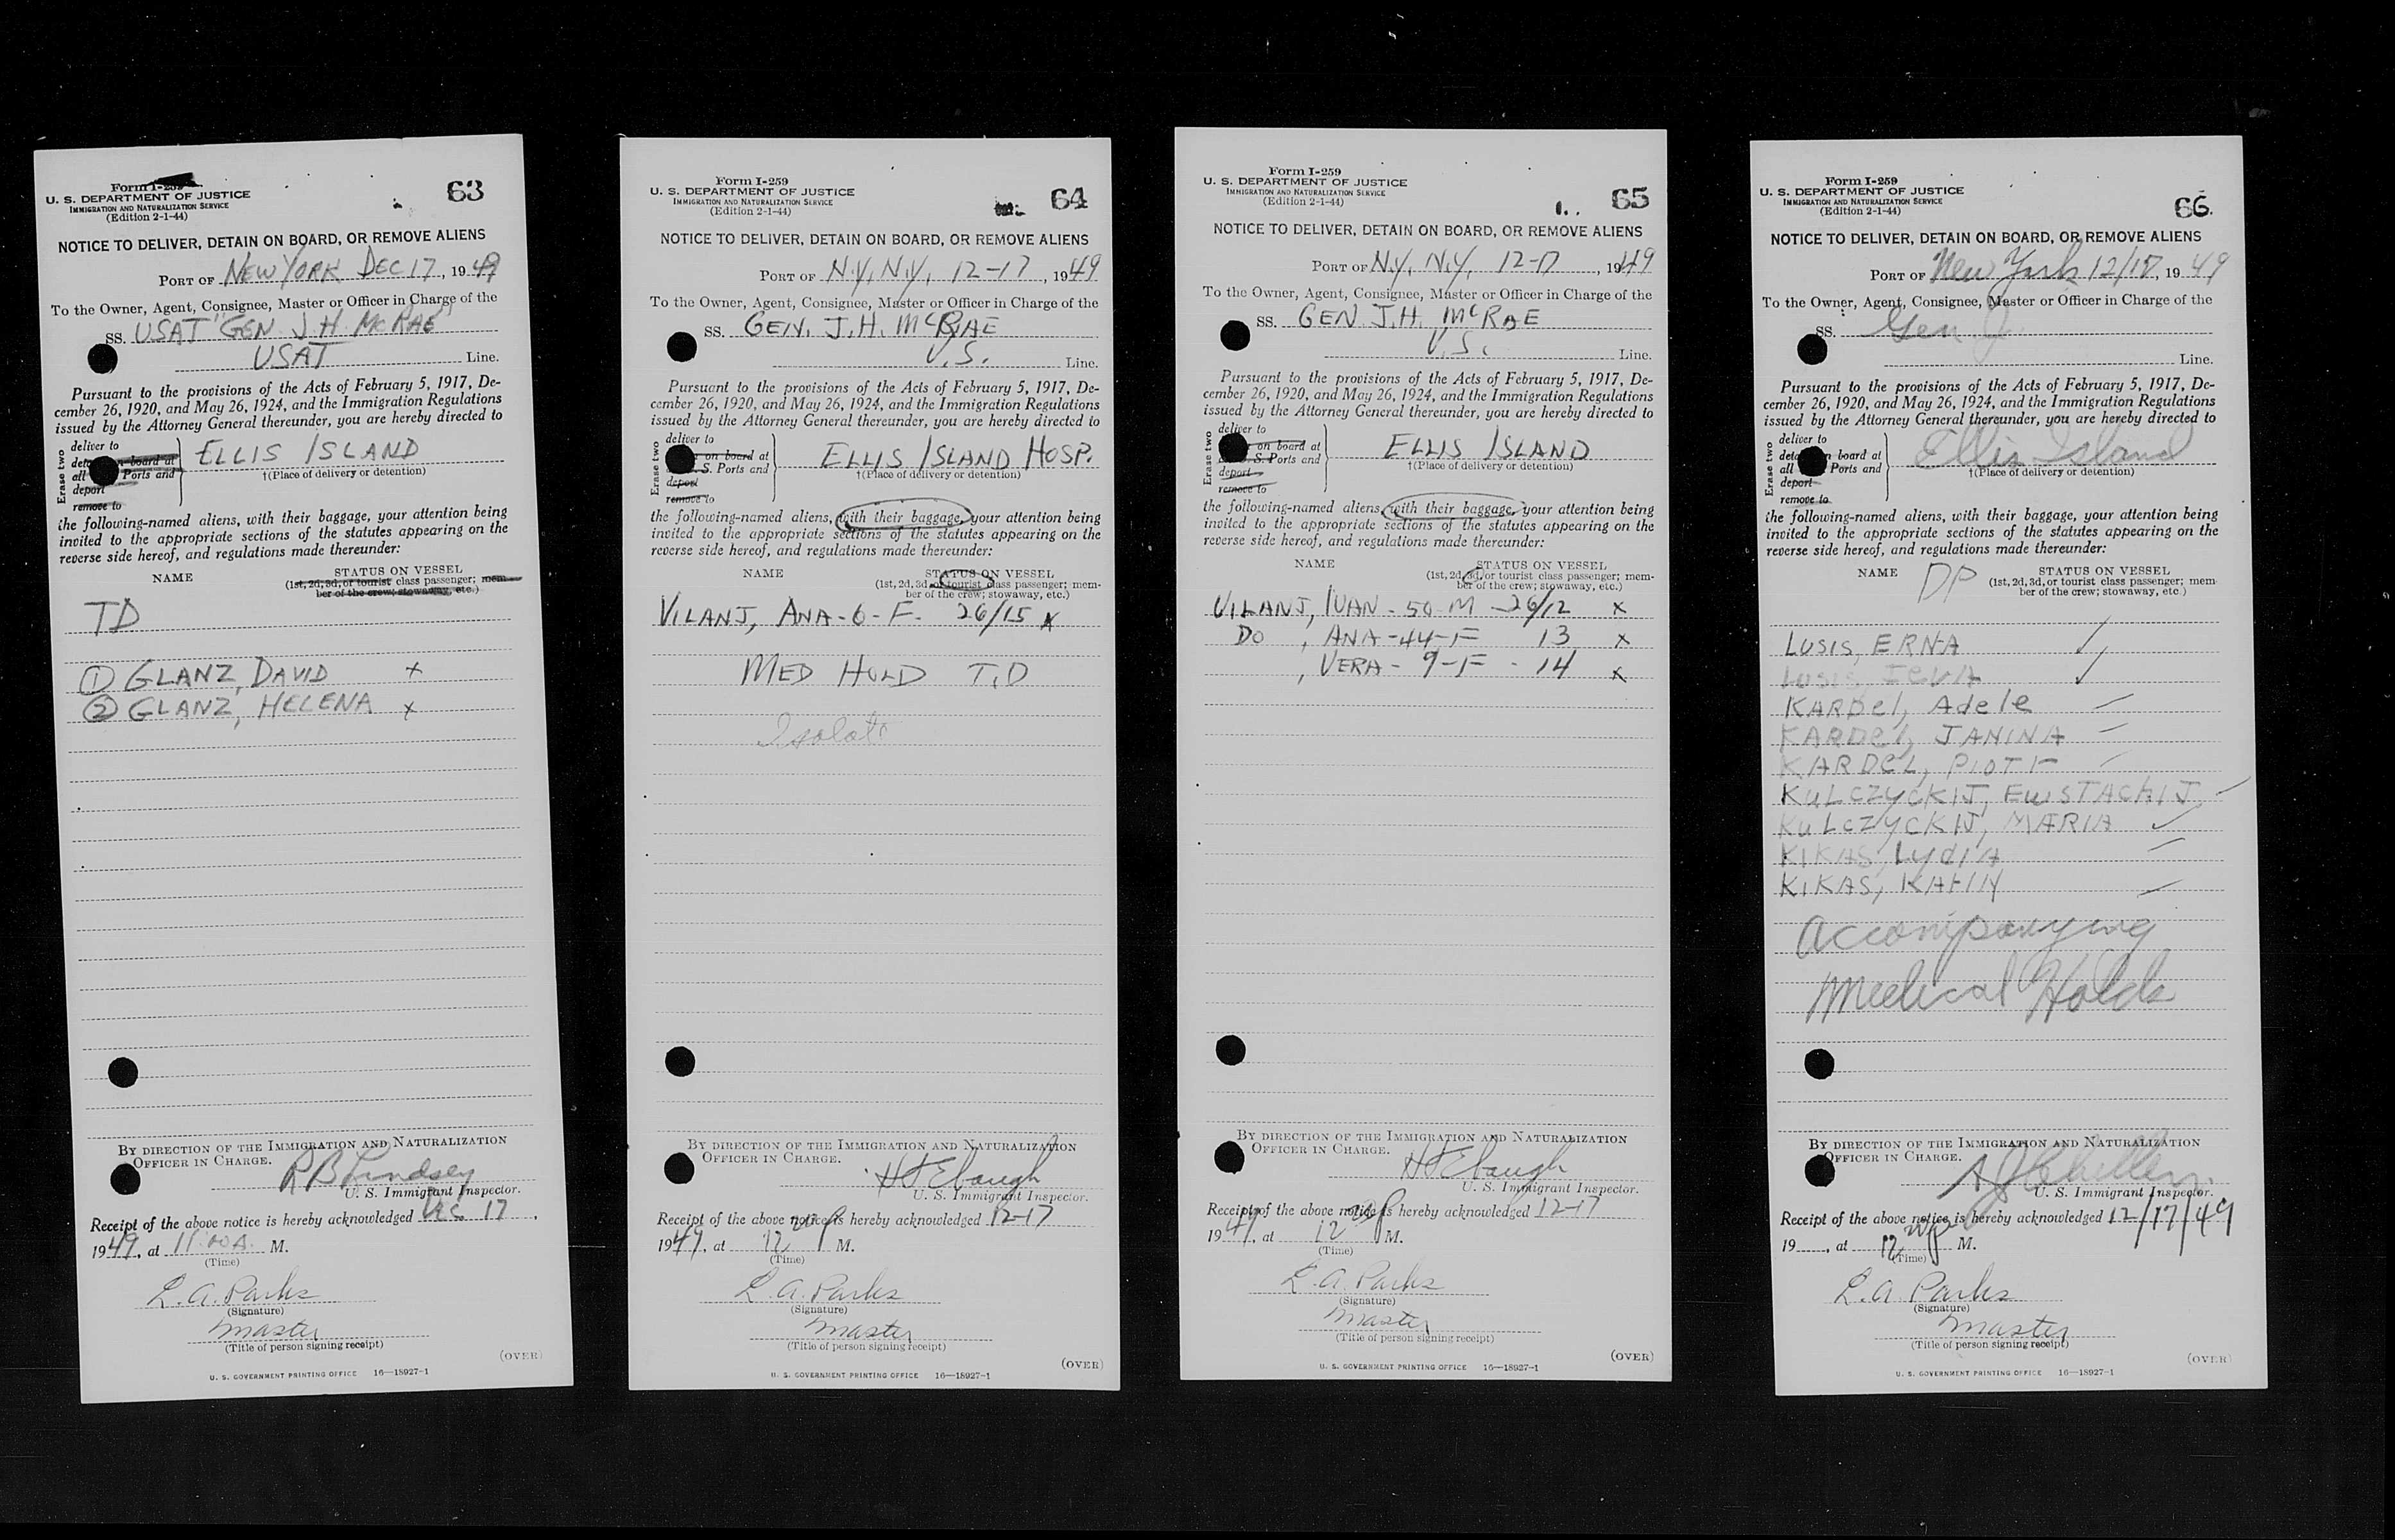 Form I-259
U. S. DEPARTMENT OF JUSTICE
IMMIGRATION AND NATURALIZATION SERVICE
(Edition 2-1-44)
63
NOTICE TO DELIVER, DETAIN ON BOARD, OR REMOVE ALIENS
PORT OF NEW YORK DEC 17, 1949
To the Owner, Agent, Consignee, Master or Officer in Charge of the
SS. USAT "GEN J H McRAE"
USAT Line.
Pursuant to the provisions of the Acts of February 5, 1917, De-
cember 26, 1920, and May 26, 1924, and the Immigration Regulations
issued by the Attorney General thereunder, you are hereby directed to
Erase two
deliver to
on board at
all Ports and
deport
remove to
ELLIS ISLAND
†(Place of delivery or detention)
the following-named aliens, with their baggage, your attention being
invited to the appropriate sections of the statutes appearing on the
reverse side hereof, and regulations made thereunder:
NAME
STATUS ON VESSEL
(1st, 2d, 3d, or tourist class passenger; mem-
ber of the crew; stowaway, etc.)
TD
① GLANZ, DAVID x
② GLANZ, HELENA x
BY DIRECTION OF THE IMMIGRATION AND NATURALIZATION
OFFICER IN CHARGE.
R B Lindsey
U. S. Immigrant Inspector.
Receipt of the above notice is hereby acknowledged Dec 17,
1949, at 11:00 A. M.
(Time)
L. A. Parks
(Signature)
Master
(Title of person signing receipt)
(OVER)
U. S. GOVERNMENT PRINTING OFFICE 16—18927-1
Form I-259
U. S. DEPARTMENT OF JUSTICE
IMMIGRATION AND NATURALIZATION SERVICE
(Edition 2-1-44)
64
NOTICE TO DELIVER, DETAIN ON BOARD, OR REMOVE ALIENS
PORT OF N.Y, N.Y, 12-17, 1949
To the Owner, Agent, Consignee, Master or Officer in Charge of the
SS. GEN. J.H. McRAE
U.S. Line.
Pursuant to the provisions of the Acts of February 5, 1917, De-
cember 26, 1920, and May 26, 1924, and the Immigration Regulations
issued by the Attorney General thereunder, you are hereby directed to
Erase two
deliver to
on board at
S. Ports and
deport
remove to
ELLIS ISLAND HOSP.
†(Place of delivery or detention)
the following-named aliens, with their baggage, your attention being
invited to the appropriate sections of the statutes appearing on the
reverse side hereof, and regulations made thereunder:
NAME
STATUS ON VESSEL
(1st, 2d, 3d, or tourist class passenger; mem-
ber of the crew; stowaway, etc.)
VILANJ, ANA - 6 - F. 26/15 x
MED HOLD T.D
Isolate
BY DIRECTION OF THE IMMIGRATION AND NATURALIZATION
OFFICER IN CHARGE.
H J Ebaugh
U. S. Immigrant Inspector.
Receipt of the above notice is hereby acknowledged 12-17
1949, at 12 20 P M.
(Time)
L. A. Parks
(Signature)
Master
(Title of person signing receipt)
(OVER)
U. S. GOVERNMENT PRINTING OFFICE 16—18927-1
Form I-259
U. S. DEPARTMENT OF JUSTICE
IMMIGRATION AND NATURALIZATION SERVICE
(Edition 2-1-44)
65
NOTICE TO DELIVER, DETAIN ON BOARD, OR REMOVE ALIENS
PORT OF N.Y, N.Y, 12-17, 1949
To the Owner, Agent, Consignee, Master or Officer in Charge of the
SS. GEN J.H. McRAE
U.S. Line.
Pursuant to the provisions of the Acts of February 5, 1917, De-
cember 26, 1920, and May 26, 1924, and the Immigration Regulations
issued by the Attorney General thereunder, you are hereby directed to
Erase two
deliver to
on board at
S. Ports and
deport
remove to
ELLIS ISLAND
†(Place of delivery or detention)
the following-named aliens, with their baggage, your attention being
invited to the appropriate sections of the statutes appearing on the
reverse side hereof, and regulations made thereunder:
NAME
STATUS ON VESSEL
(1st, 2d, 3d, or tourist class passenger; mem-
ber of the crew; stowaway, etc.)
VILANJ, IVAN - 50 - M - 26/12 x
DO , ANA - 44 - F 13 x
, VERA - 9 - F - 14 x
BY DIRECTION OF THE IMMIGRATION AND NATURALIZATION
OFFICER IN CHARGE.
H J Ebaugh
U. S. Immigrant Inspector.
Receipt of the above notice is hereby acknowledged 12-17
1949, at 12 20 P M.
(Time)
L. A. Parks
(Signature)
Master
(Title of person signing receipt)
(OVER)
U. S. GOVERNMENT PRINTING OFFICE 16—18927-1
Form I-259
U. S. DEPARTMENT OF JUSTICE
IMMIGRATION AND NATURALIZATION SERVICE
(Edition 2-1-44)
66.
NOTICE TO DELIVER, DETAIN ON BOARD, OR REMOVE ALIENS
PORT OF New York 12/17, 1949
To the Owner, Agent, Consignee, Master or Officer in Charge of the
SS. Gen J
Line.
Pursuant to the provisions of the Acts of February 5, 1917, De-
cember 26, 1920, and May 26, 1924, and the Immigration Regulations
issued by the Attorney General thereunder, you are hereby directed to
Erase two
deliver to
on board at
all Ports and
deport
remove to
Ellis Island
†(Place of delivery or detention)
the following-named aliens, with their baggage, your attention being
invited to the appropriate sections of the statutes appearing on the
reverse side hereof, and regulations made thereunder:
NAME DP
STATUS ON VESSEL
(1st, 2d, 3d, or tourist class passenger; mem-
ber of the crew; stowaway, etc.)
LUSIS, ERNA ✓
LUSIS, IEVA ✓
KARDEL, Adele –
KARDEL, JANINA –
KARDEL, PIOTR –
KULCZYCKIJ, EWSTACHIJ –
KULCZYCKIJ, MARIA ✓
KIKAS Lydia –
KIKAS, KATIN –
Accompanying
Medical Holds
BY DIRECTION OF THE IMMIGRATION AND NATURALIZATION
OFFICER IN CHARGE.
U. S. Immigrant Inspector.
Receipt of the above notice is hereby acknowledged 12/17/49
19 , at 12 20 P M.
(Time)
L. A. Parks
(Signature)
Master
(Title of person signing receipt)
(OVER)
U. S. GOVERNMENT PRINTING OFFICE 16—18927-1